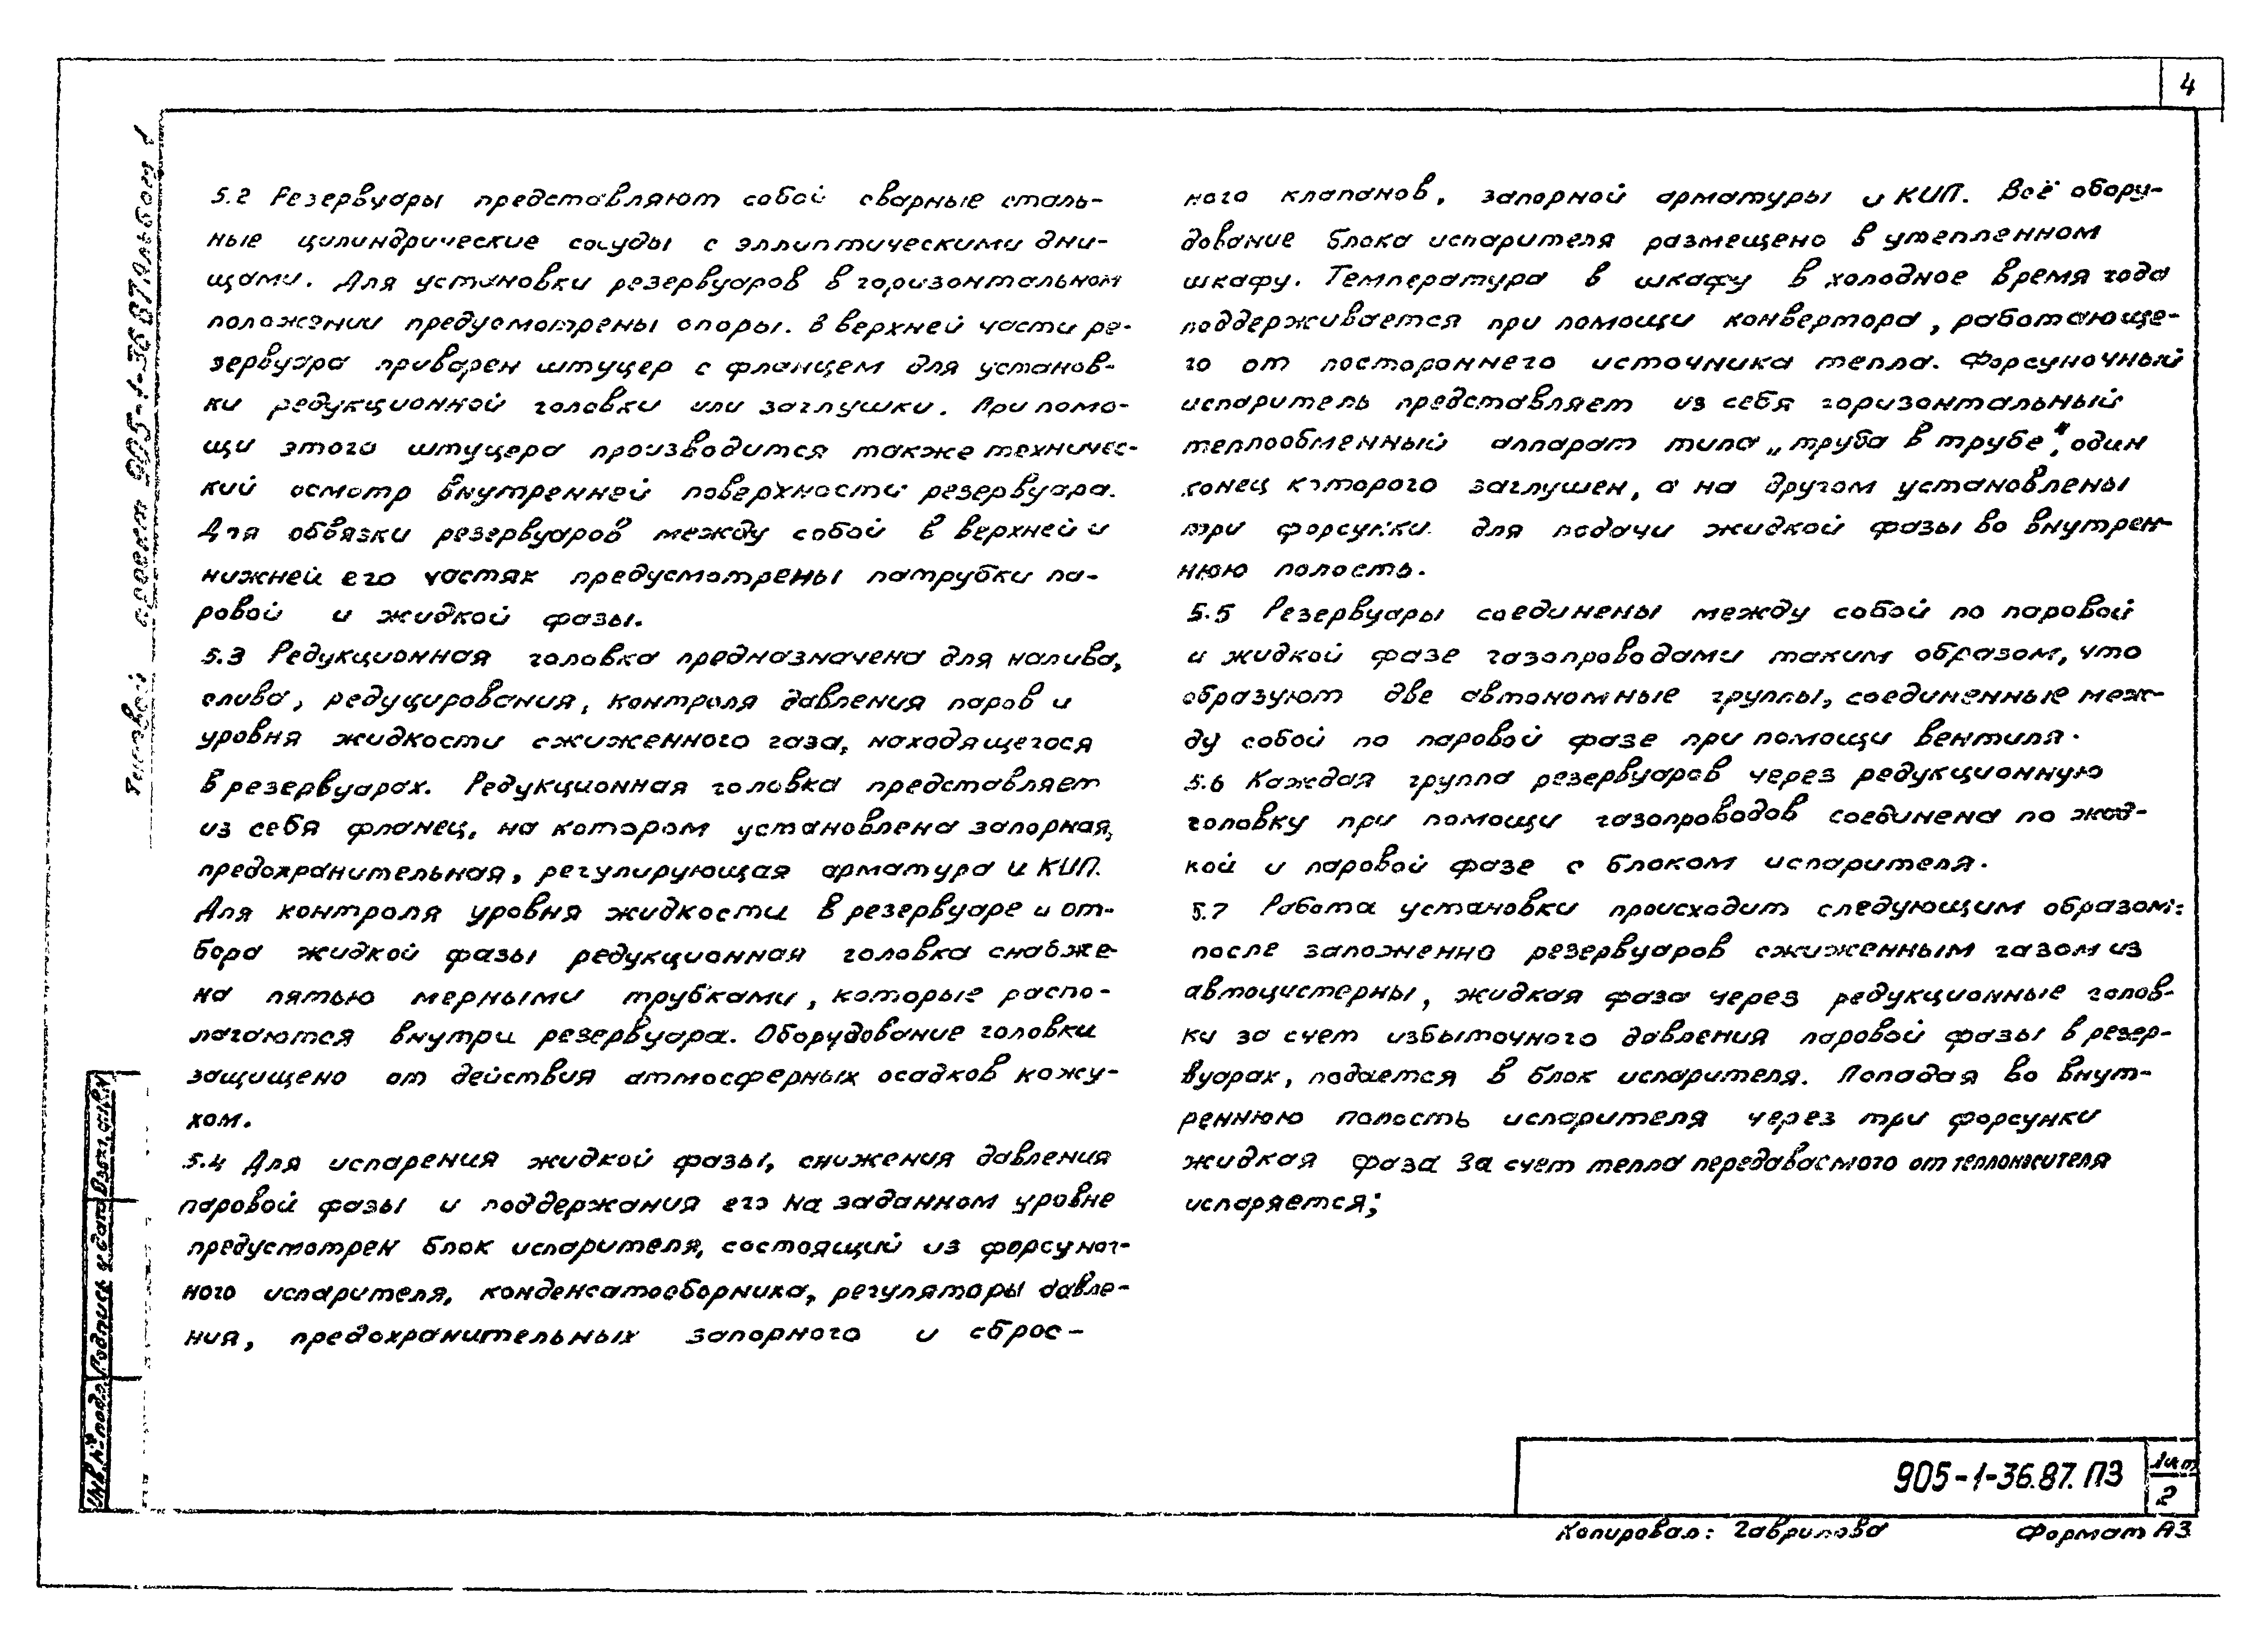 4
5.2 Резервуары представляют собой сварные сталь-
ные цилиндрические сосуды с эллиптическими дни-
щами. Для установки резервуаров в горизонтальном
положении предусмотрены опоры. В верхней части ре-
зервуара приварен штуцер с фланцем для установ-
ки редукционной головки или заглушки. При помо-
щи этого штуцера производится также техничес-
кий осмотр внутренней поверхности резервуара.
Для обвязки резервуаров между собой в верхней и
нижней его частях предусмотрены патрубки па-
ровой и жидкой фазы.
5.3 Редукционная головка предназначена для налива,
слива, редуцирования, контроля давления паров и
уровня жидкости сжиженного газа, находящегося
в резервуарах. Редукционная головка представляет
из себя фланец, на котором установлена запорная,
предохранительная, регулирующая арматура и КИП.
Для контроля уровня жидкости в резервуаре и от-
бора жидкой фазы редукционная головка снабже-
на пятью мерными трубками, которые распо-
лагаются внутри резервуара. Оборудование головки
защищено от действия атмосферных осадков кожу-
хом.
5.4 Для испарения жидкой фазы, снижения давления
паровой фазы и поддержания его на заданном уровне
предусмотрен блок испарителя, состоящий из форсуноч-
ного испарителя, конденсатосборника, регуляторы давле-
ния, предохранительных запорного и сброс-
ного клапанов, запорной арматуры и КИП. Всё обору-
дование блока испарителя размещено в утепленном
шкафу. Температура в шкафу в холодное время года
поддерживается при помощи конвертора, работающе-
го от постороннего источника тепла. Форсуночный
испаритель представляет из себя горизонтальный
теплообменный аппарат типа „труба в трубе", один
конец которого заглушен, а на другом установлены
три форсунки для подачи жидкой фазы во внутрен-
нюю полость.
5.5 Резервуары соединены между собой по паровой
и жидкой фазе газопроводами таким образом, что
образуют две автономные группы, соединенные меж-
ду собой по паровой фазе при помощи вентиля.
5.6 Каждая группа резервуаров через редукционную
головку при помощи газопроводов соединена по жид-
кой и паровой фазе с блоком испарителя.
5.7 Работа установки происходит следующим образом:
после заполненно резервуаров сжиженным газом из
автоцистерны, жидкая фаза через редукционные голов-
ки за счет избыточного давления паровой фазы в резер-
вуарах, подается в блок испарителя. Попадая во внут-
реннюю полость испарителя через три форсунки
жидкая фаза за счет тепла передаваемого от теплоносителя
испаряется;
Типовой проект 905-1-36.87. Альбом 1
Инв.№ подл. Подпись и дата Взам.инв.№
905-1-36.87. ПЗ
Лист
2
Копировал: Гаврилова Формат А3